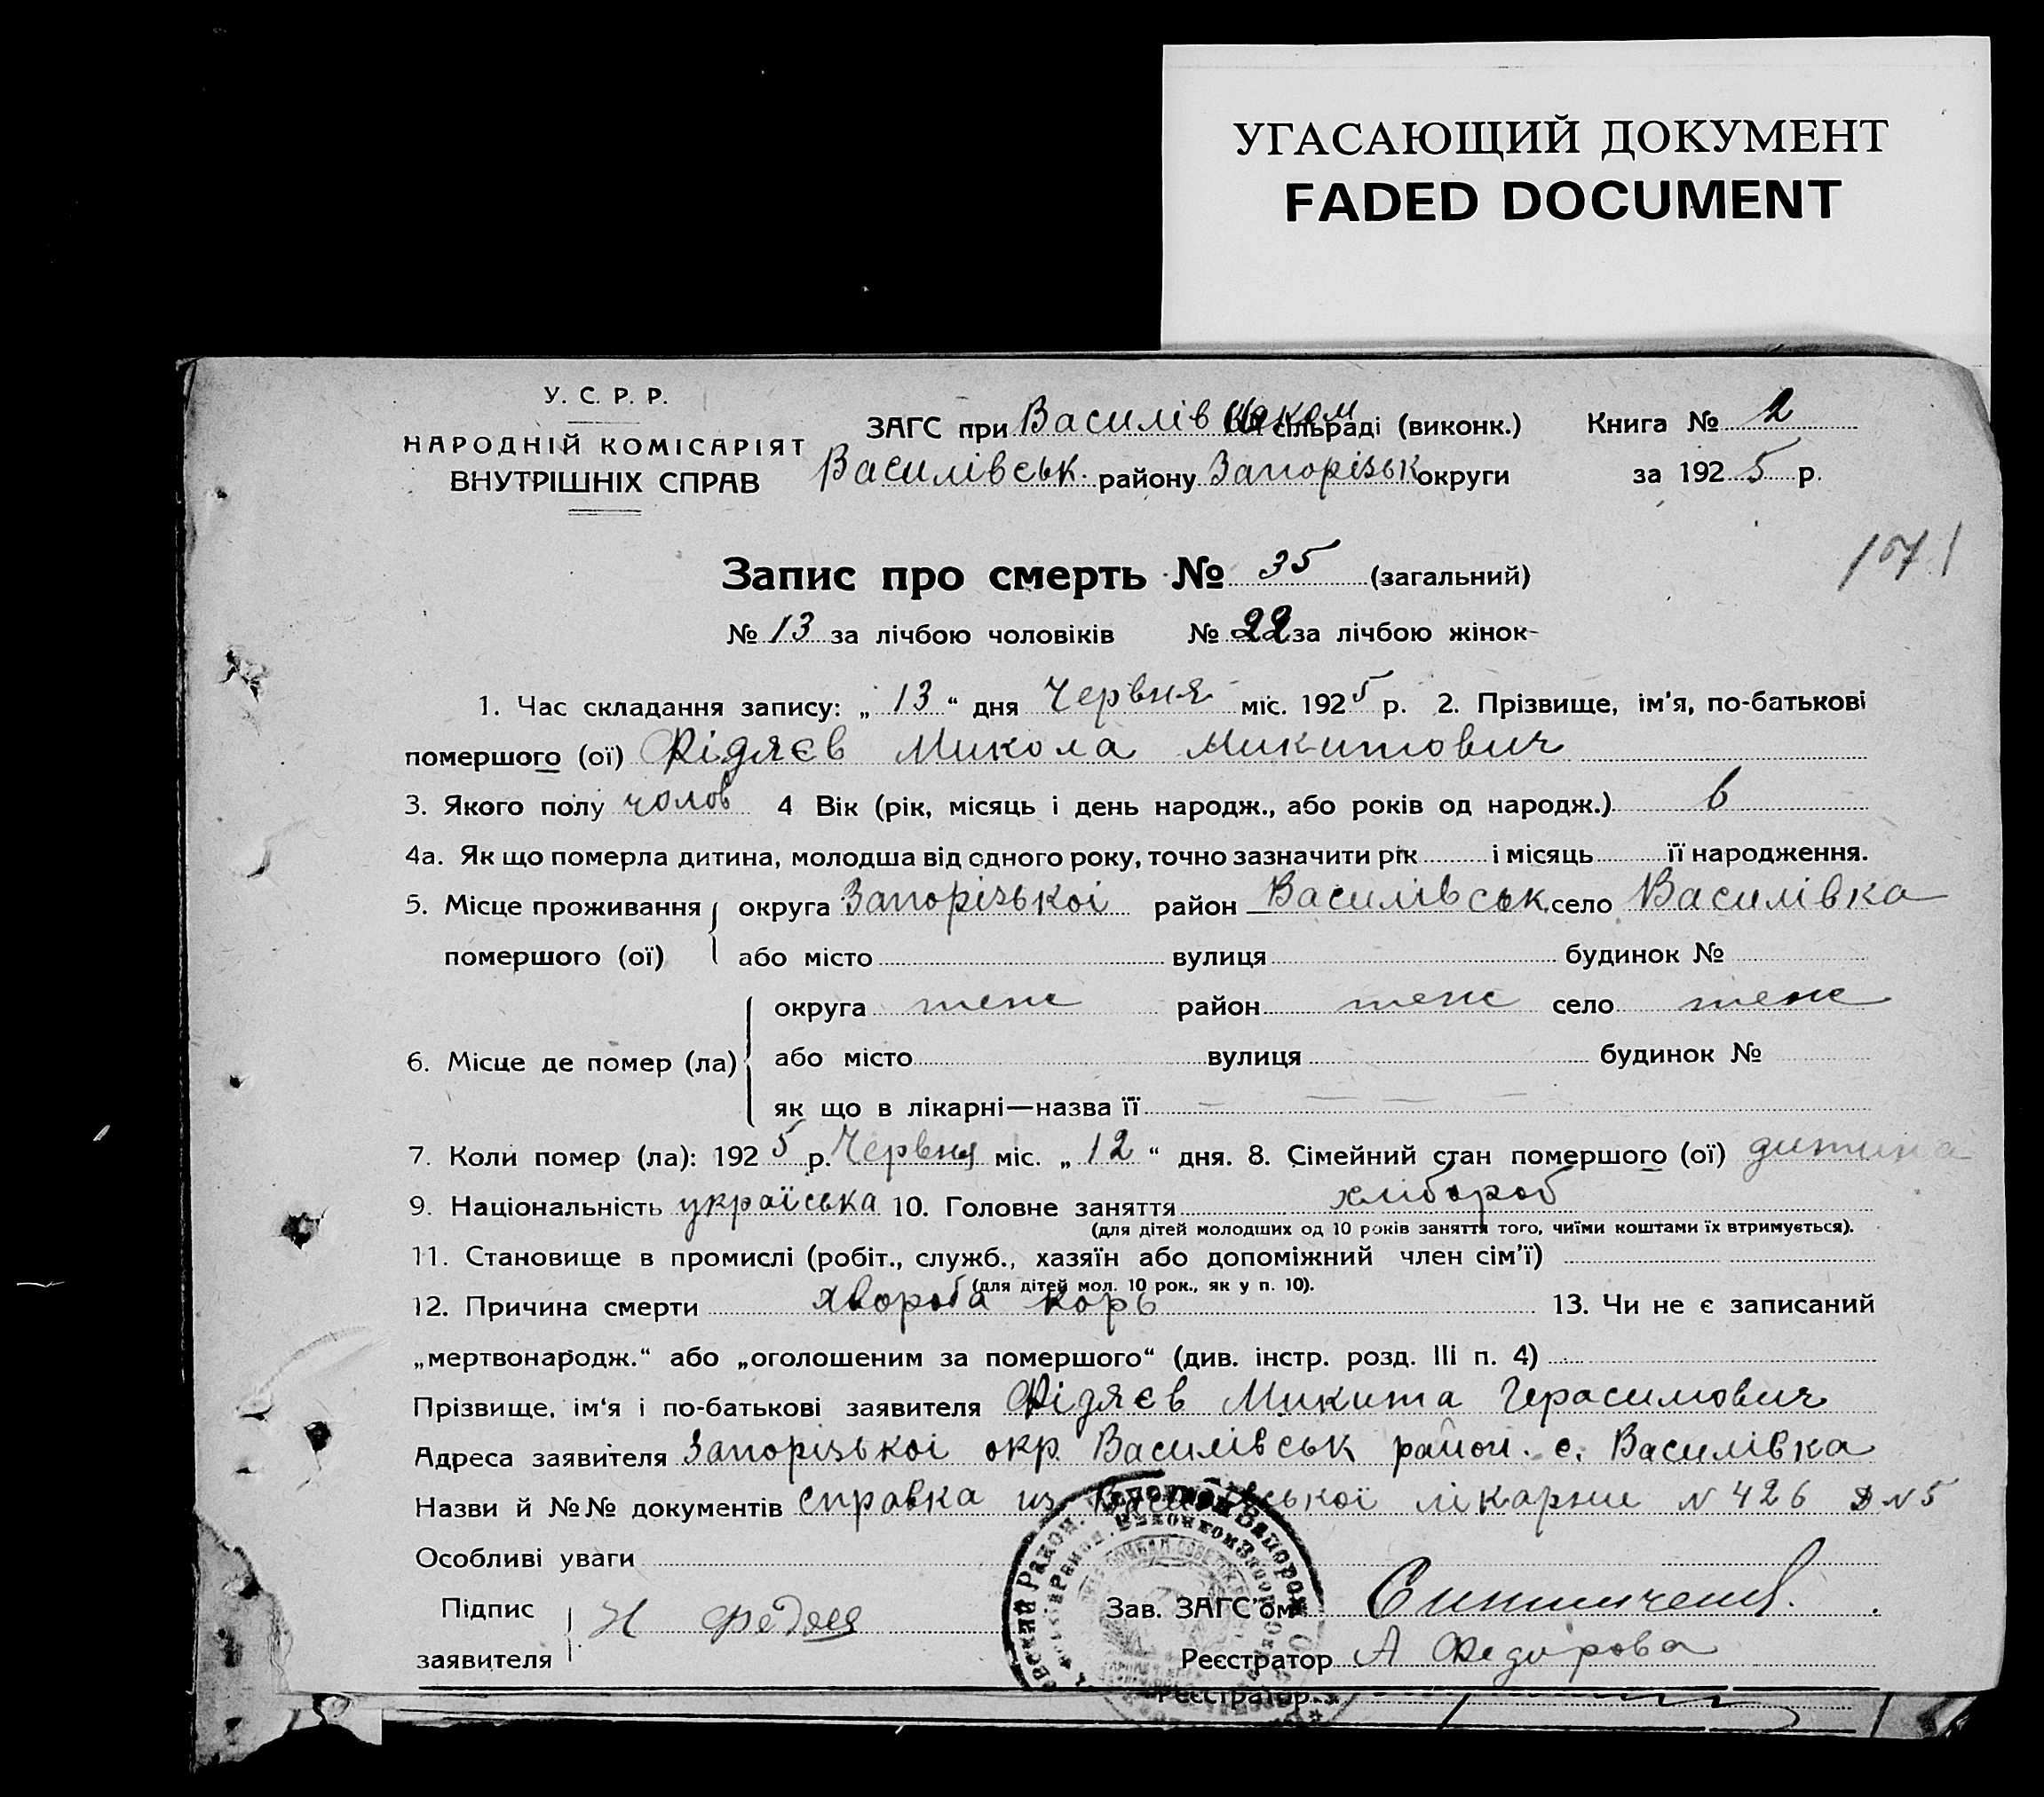 УГАСАЮЩИЙ ДОКУМЕНТ
FADED DOCUMENT
У. С. Р. Р.
НАРОДНІЙ КОМІСАРІЯТ
ВНУТРІШНІХ СПРАВ
ЗАГС при Василів сільраді (виконк.)
Василівськ. району Запорізьк округи
Книга № 2
за 1925 р.
Запис про смерть № 35 (загальний)
№ 13 за лічбою чоловіків № 22 за лічбою жінок-
1. Час складання запису: „13“ дня Червня міс. 1925 р. 2. Прізвище, ім'я, по-батькові
помершого (ої) Фідяєв Микола Микитович
3. Якого полу чолов 4 Вік (рік, місяць і день народж., або років од народж.) 6
4а. Як що померла дитина, молодша від одного року, точно зазначити рік і місяць її народження.
5. Місце проживання округа Запорізькоі район Василівськ. село Василівка
помершого (ої) або місто вулиця будинок №
округа теж район теж село теж
6. Місце де помер (ла) або місто вулиця будинок №
як що в лікарні—назва її
7. Коли помер (ла): 1925 р. Червня міс. „12“ дня. 8. Сімейний стан помершого (ої) дитина
9. Національність українська 10. Головне заняття хлібороб
(для дітей молодших од 10 років заняття того, чиїми коштами їх втримується).
11. Становище в промислі (робіт., служб., хазяїн або допоміжний член сім'ї)
(для дітей мол. 10 рок., як у п. 10).
12. Причина смерти хвороба корь 13. Чи не є записаний
„мертвонародж.“ або „оголошеним за помершого“ (див. інстр. розд. III п. 4)
Прізвище, ім'я і по-батькові заявителя Фідяєв Микита Герасимович
Адреса заявителя Запорізькоі окр. Василівськ район. с. Василівка
Назви й №№ документів справка из Василівської лікарни N 426
Особливі уваги
Підпис
заявителя
Зав. ЗАГС'ом
Реєстратор А Федорова
Реєстратор